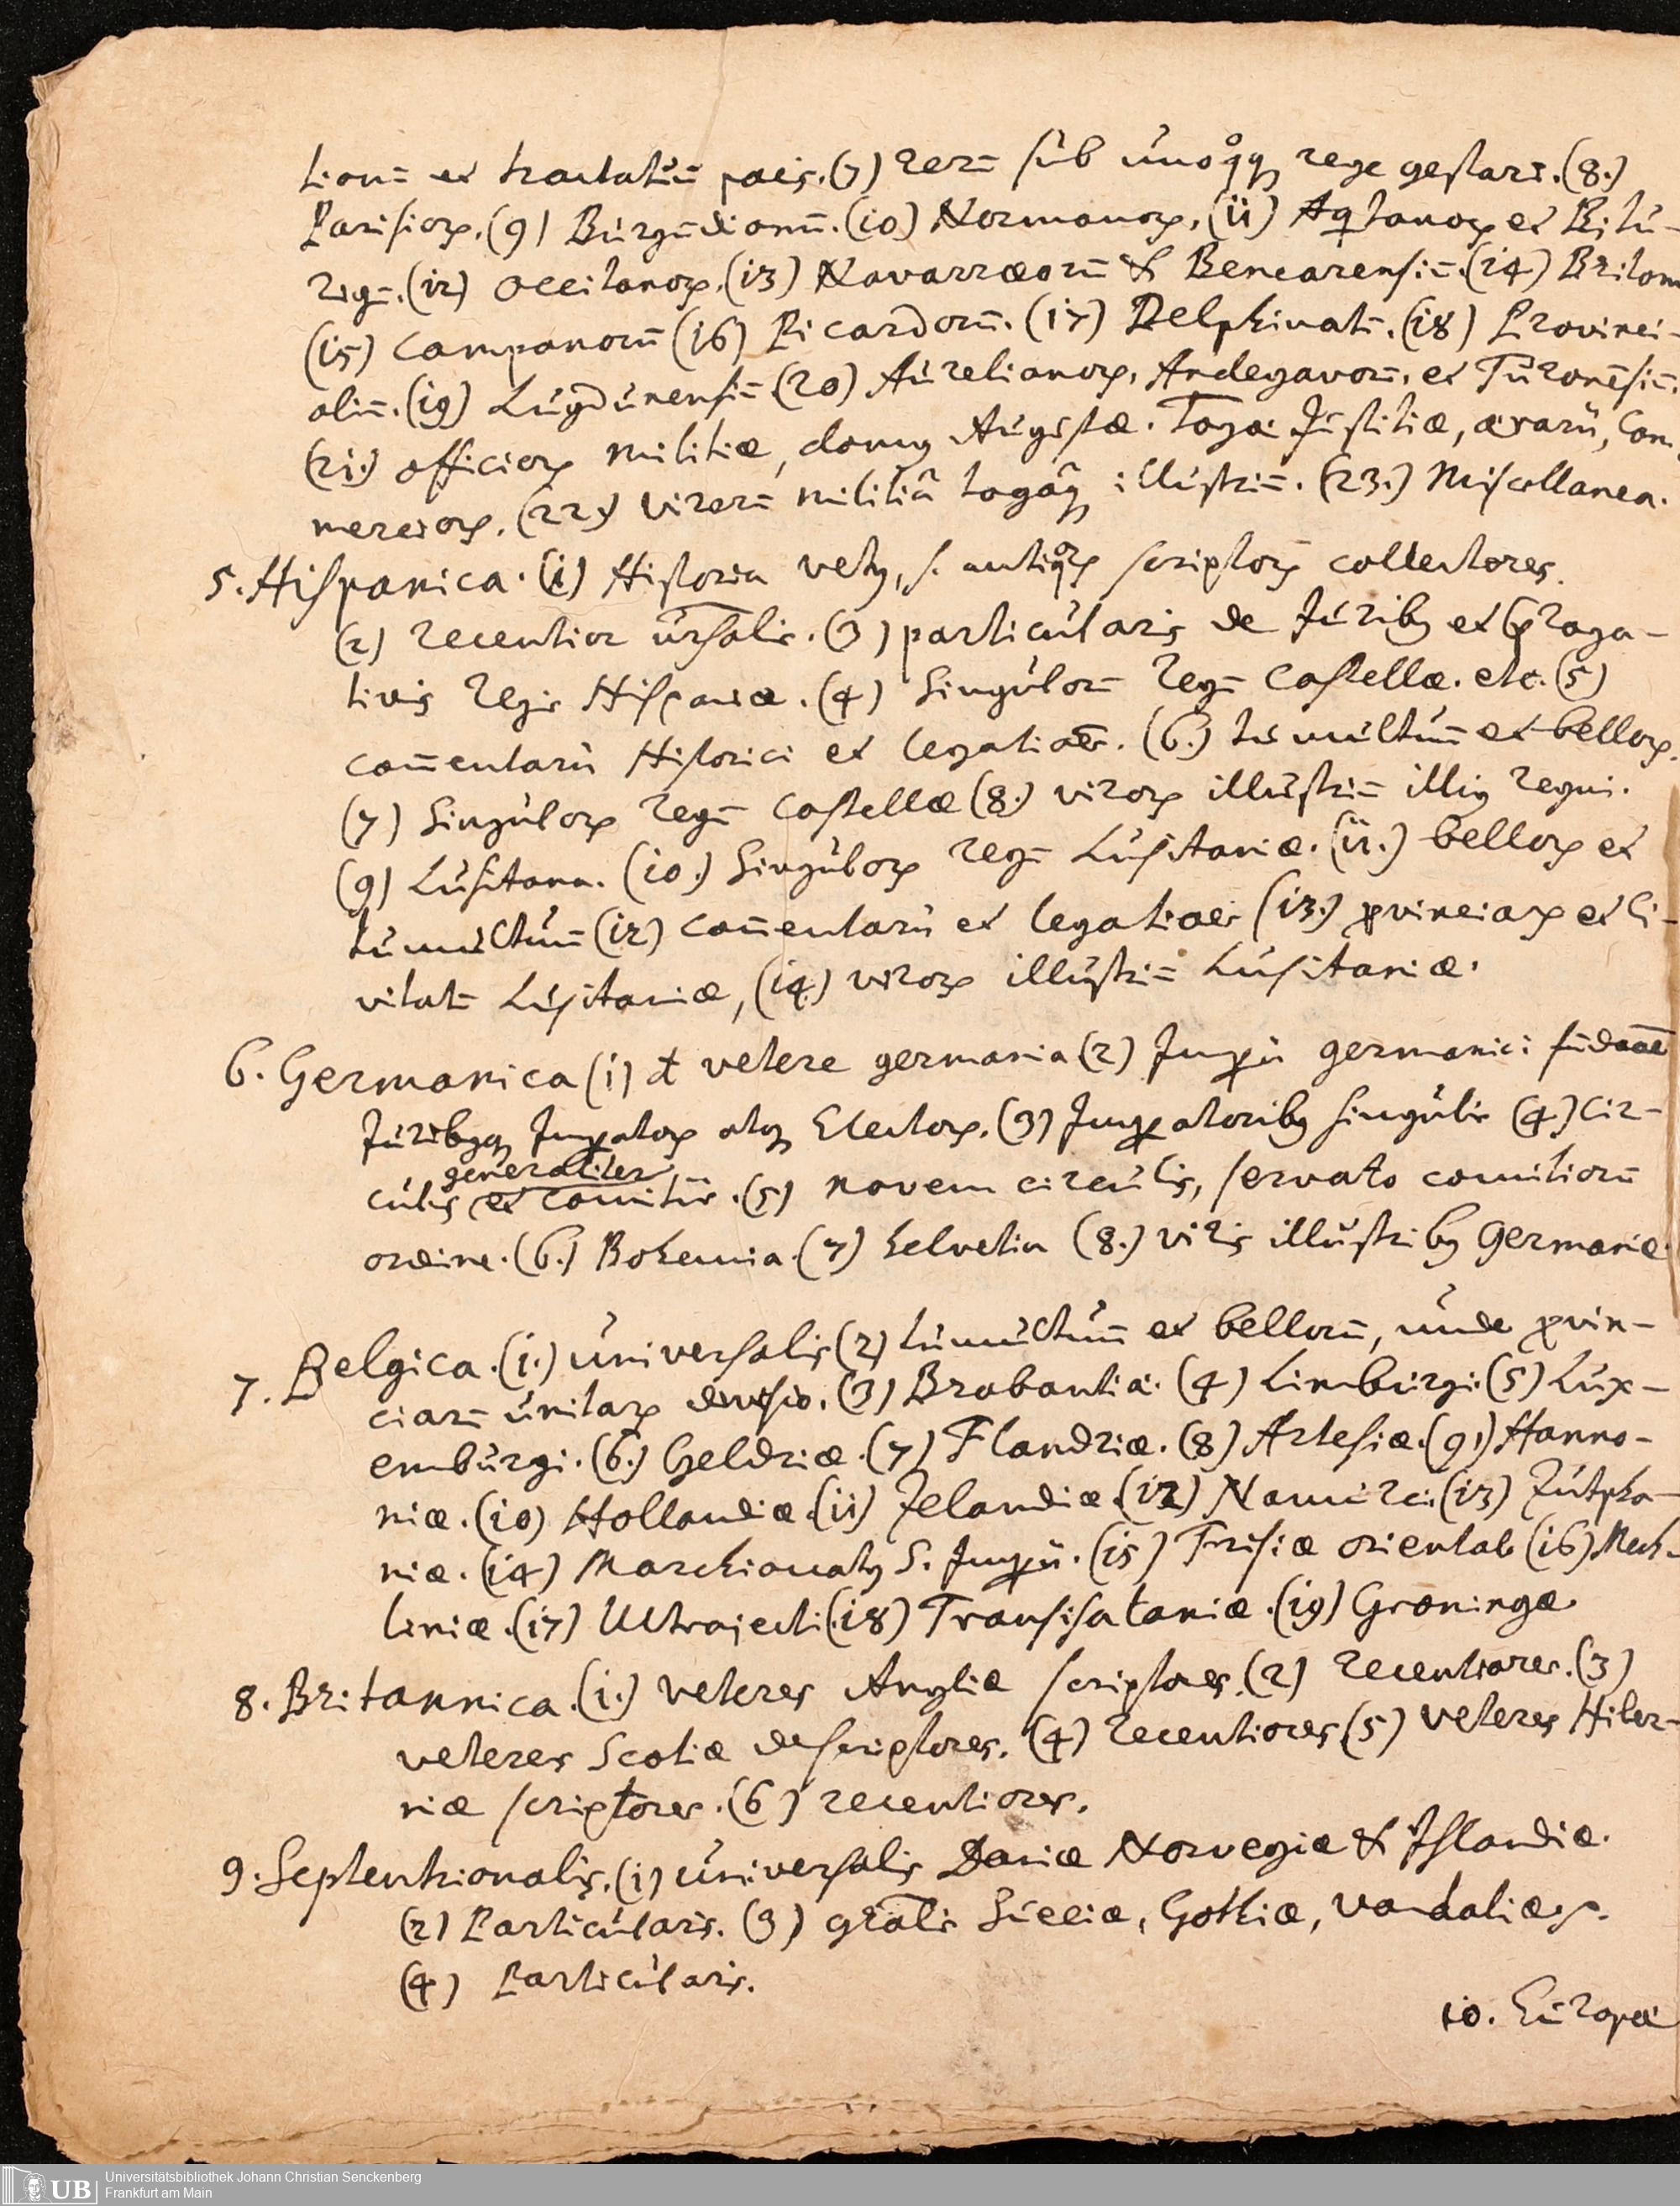 tionū et tractatuū pacis. (7) rerū sub unoqq rege gestarū. (8.)
Parisiorꝝ. (9) Burgūdionū. (10) Normanorꝝ. (11) Aqtanorꝝ et Bitu-
rigū. (12) Occitanorꝝ. (13) Navarræorū & Benearensiū. (14) Briton
(15) Campanorū (16) Picardorū. (17) Delphinatū. (18) Provinci-
aliū. (19) Lugdunensiū (20) Aurelianorꝝ, Andegavorū, et Turonēsiū.
(21.) officiorꝝ militiæ, domus Augustæ. Togæ Justitiæ, ærarii, Com,
merciorꝝ. (22.) virorū militiâ togâq illustriū. (23.) Miscellanea.
5. Hispanica. (1) Historia vetus, s. antiqorꝝ scriptorꝝ collectores.
(2) recentior ūrsalis. (3) particularis de Juribus et p̱roga-
tivis regis Hispaniæ. (4) Singulorū regū Castellæ. etc. (5)
com̄entarii Historici et legatioēs. (6.) tumultuū et bellorꝝ.
(7) Singulorꝝ regū Castellæ (8.) virorꝝ illustriū illius regni.
(9) Lusitana. (10.) Singulorꝝ regū Lusitaniæ. (11.) bellorꝝ et
tumultuū (12) com̄entarii et legatioēs (13.) ꝓvinciarꝝ et Ci-
vitatū Lusitaniæ, (14.) virorꝝ illustriū Lusitaniæ.
6. Germanica (1) de vetere germania (2) Imꝑii germanici
Juribusqꝫ Imꝑatorꝝ atqꝫ Electorꝝ. (3) Imꝑatoribus singulis (4.) Cir-
generaliter
culis et comitiis. (5) novem circulis, servato comitiorū
ordine. (6.) Bohemia. (7) helvetia (8.) viris illustribus Germaniæ
7. Belgica. (1.) universalis (2) tumultuū et bellorū, unde ꝓvin-
ciarū unitarꝝ divisio. (3) Brabantiæ. (4) Limburgi. (5) Lux-
emburgi. (6.) Geldriæ. (7) Flandriæ. (8) Artesiæ. (9) Hanno-
niæ. (10) Hollandiæ (11) Zelandiæ (12) Namurci (13) Zutpha-
niæ. (14) Marchionatus S. Imꝑii. (15) Frisiæ oriental (16) Mech-
liniæ. (17) Ultrajecti (18) Transisalaniæ. (19) Groningæ.
8. Britannica. (1.) veteres Angliæ scriptores. (2) recentiores. (3)
veteres Scotiæ descriptores. (4) recentiores (5) veteres Hiber-
niæ scriptores. (6) recentiores.
9. Septentrionalis. (1) universalis Daniæ Norvegiæ & Islandiæ.
(2) Particularis. (3) gr̄alis Sueciæ, Gothiæ, Vandaliæqꝫ.
(4) Particularis.
10. Europæ
Universitätsbibliothek Johann Christian Senckenberg
UB Frankfurt am Main